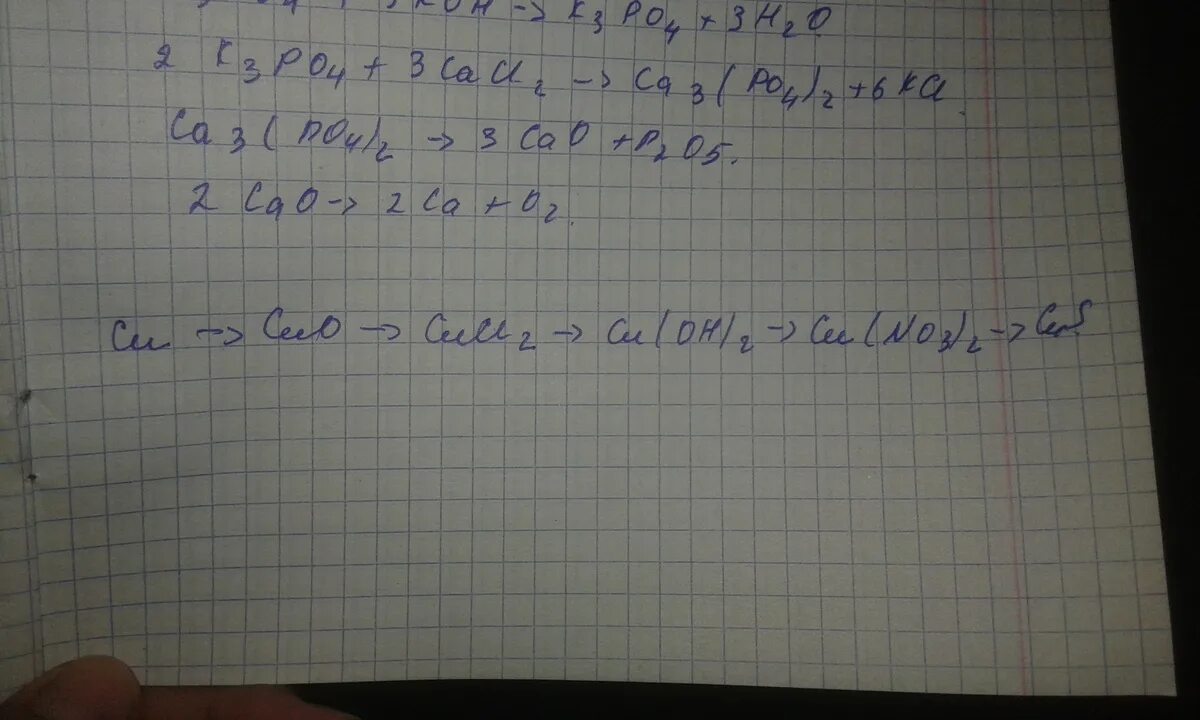 KOH → K₃PO₄ + 3H₂O
2 K₃PO₄ + 3CaCl₂ → Ca₃(PO₄)₂ + 6KCl
Ca₃(PO₄)₂ → 3CaO + P₂O₅.
2 CaO → 2Ca + O₂.
Cu → CuO → CuCl₂ → Cu(OH)₂ → Cu(NO₃)₂ → CuS